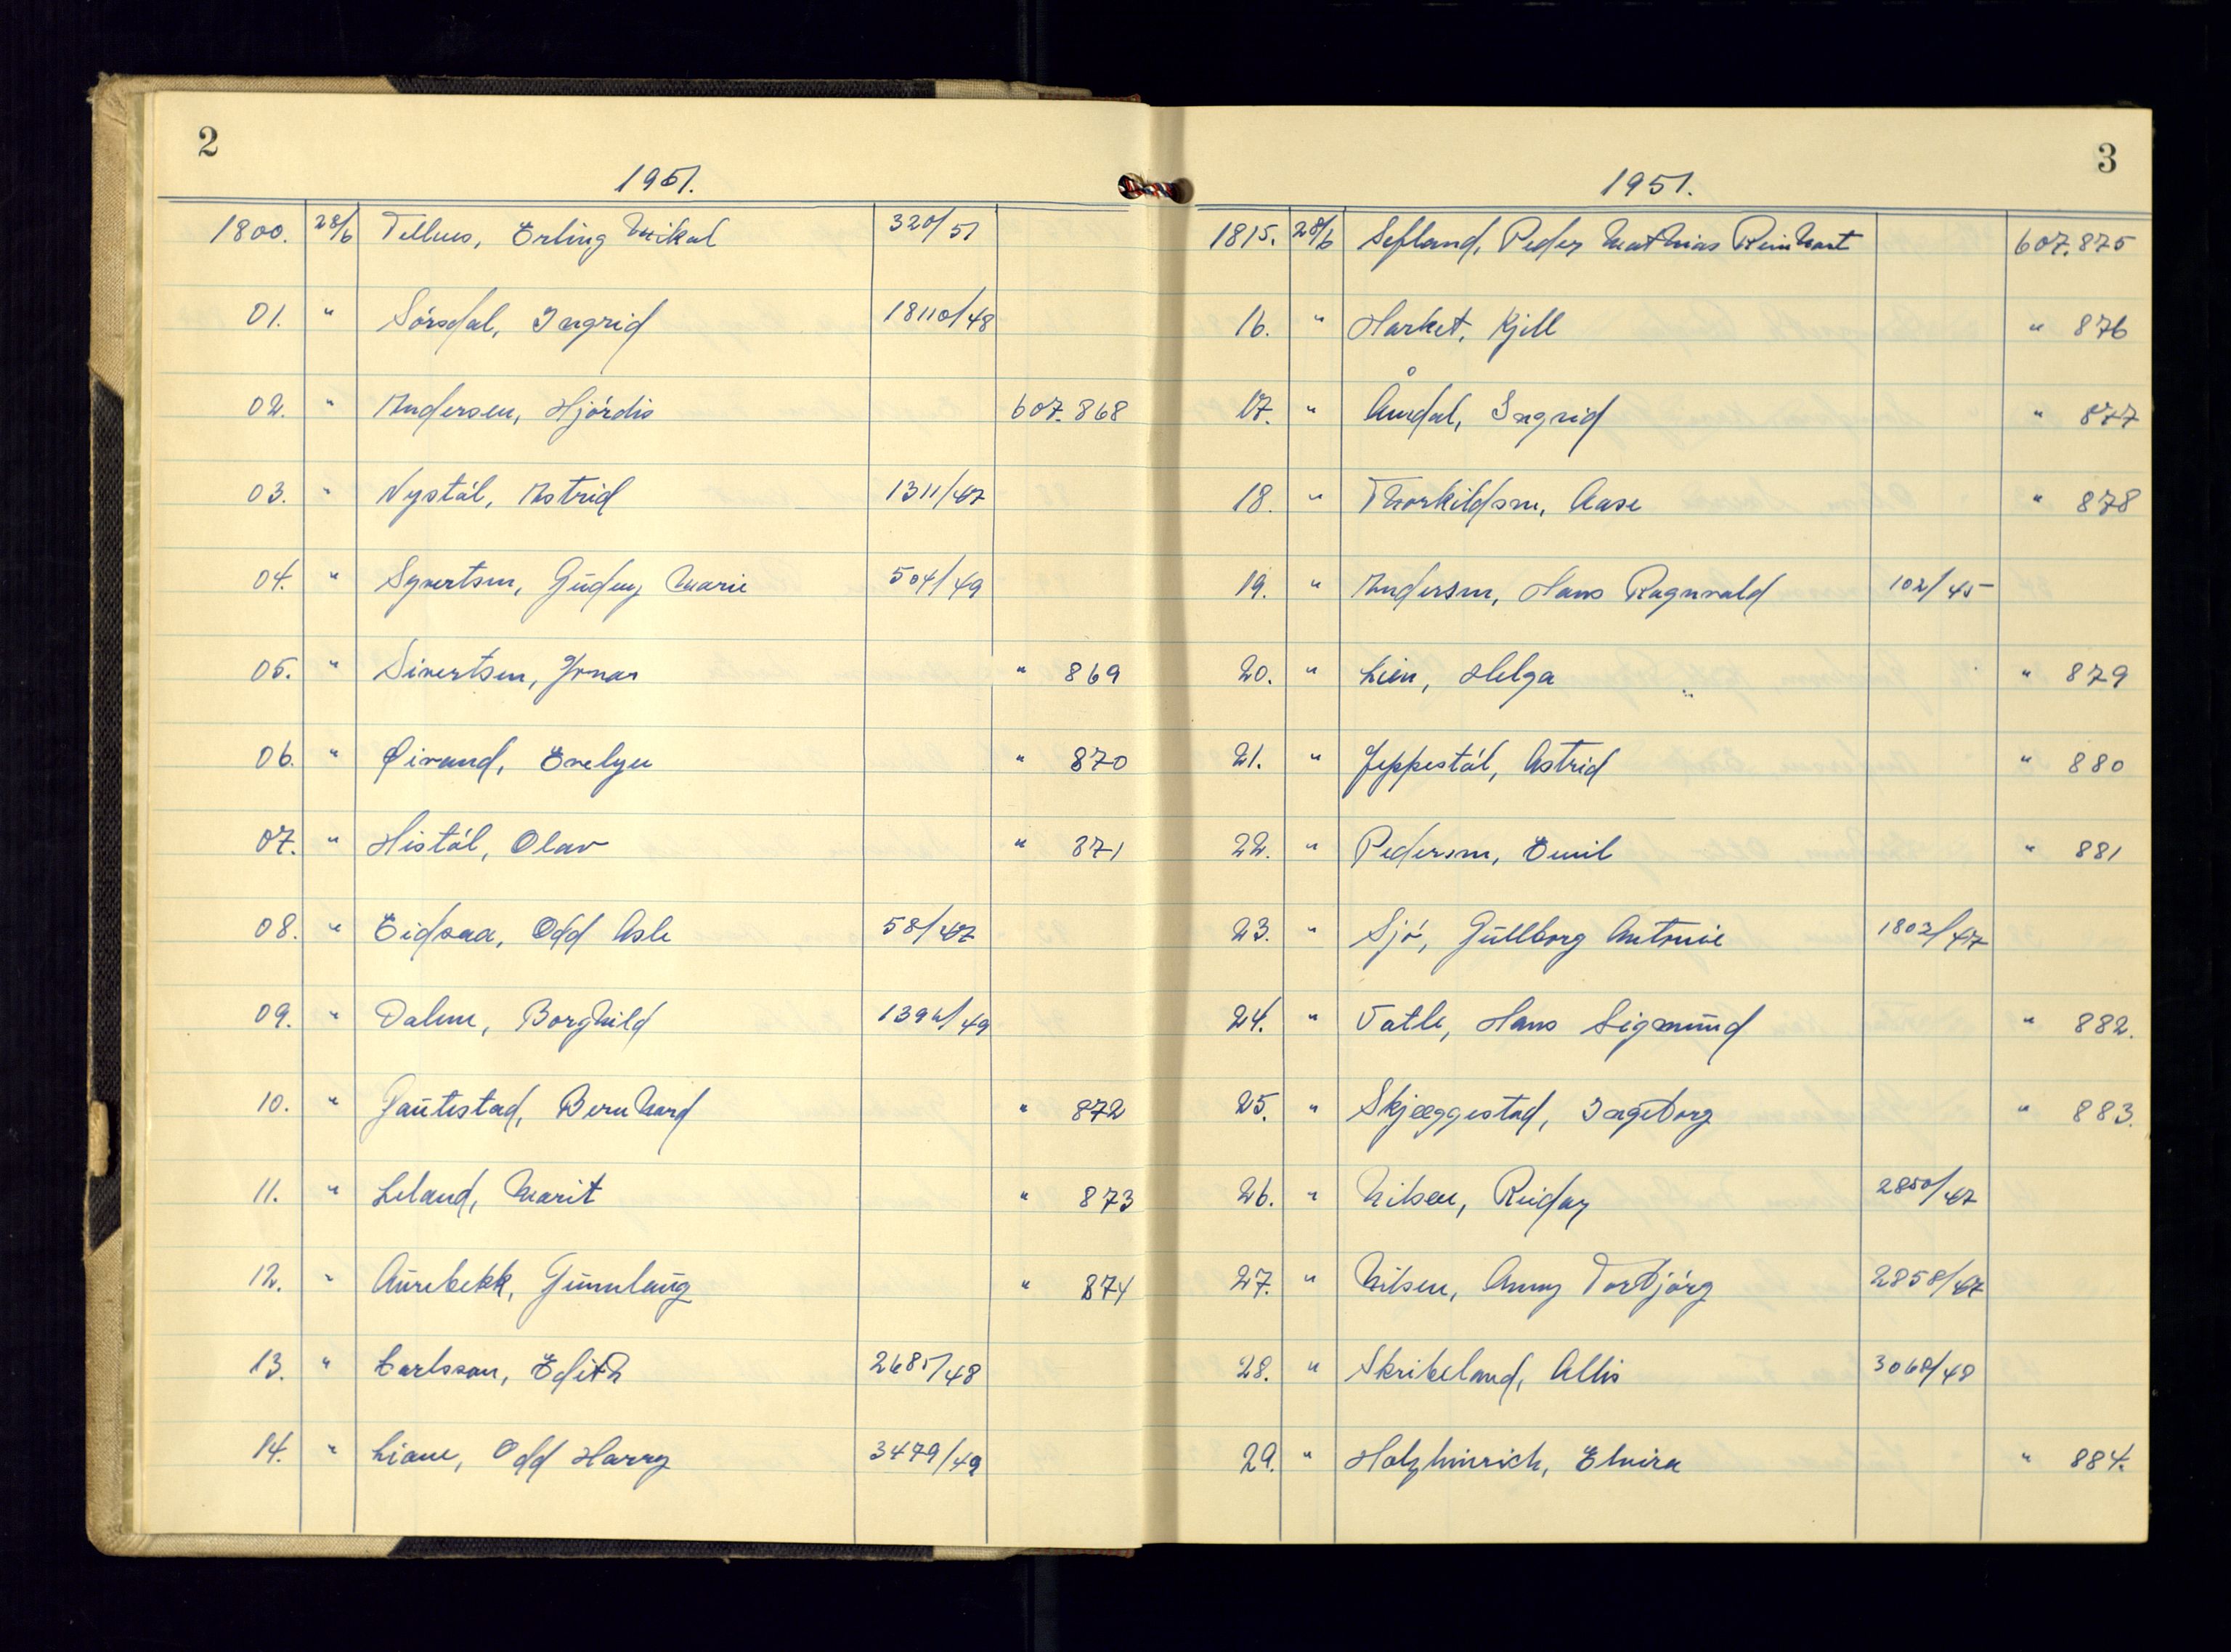 2
1951.
1800. 28/6 Tellnes, Erling Mikal 320/51
01. " Sórsdal, Ingrid 18110/48
02. " Andersen, Hjórdis 607.868
03. " Nystól, Astrid 1311/47
04. " Syvertsen, Gudny Marie 504/49
05. " Sivertsen, Jonas " 869
06. " Øivand, Evelyn " 870
07. " Histól, Olav " 871
08. " Eidsaa, Odd Asle 58/47
09. " Dalene, Borghild /49
10. " Gautestad, Bernhard " 872
11. " Leland, Marit " 873
12. " Aurebekk, Gunnlaug " 874
13. " Carlsson, Edith 2685/48
14. " Liane, Odd Harry 3479/49
3
1951.
1815. 28/6 Sefland, Peder Mathias Reinhart 607.875
16. " Harket, Kjell " 876
17. " Åmdal, Ingrid " 877
18. " Thorkildsen, Aase " 878
19. " Andersen, Hans Ragnvald 102/45
20. " Lien, Helga " 879
21. " Jeppestól, Astrid " 880
22. " Pedersen, Emil " 881
23. " Sjó, Gullborg Antonie 1802/47
24. " Tatle, Hans Sigmund " 882.
25. " Skjeggestad, Ingeborg " 883.
26. " Nilsen, Reidar 2850/47
27. " Nilsen, Anny Torbjórg 2858/47
28. " Skribeland, Allis 3068/48
29. " Holzhinrich, Elvira " 884.